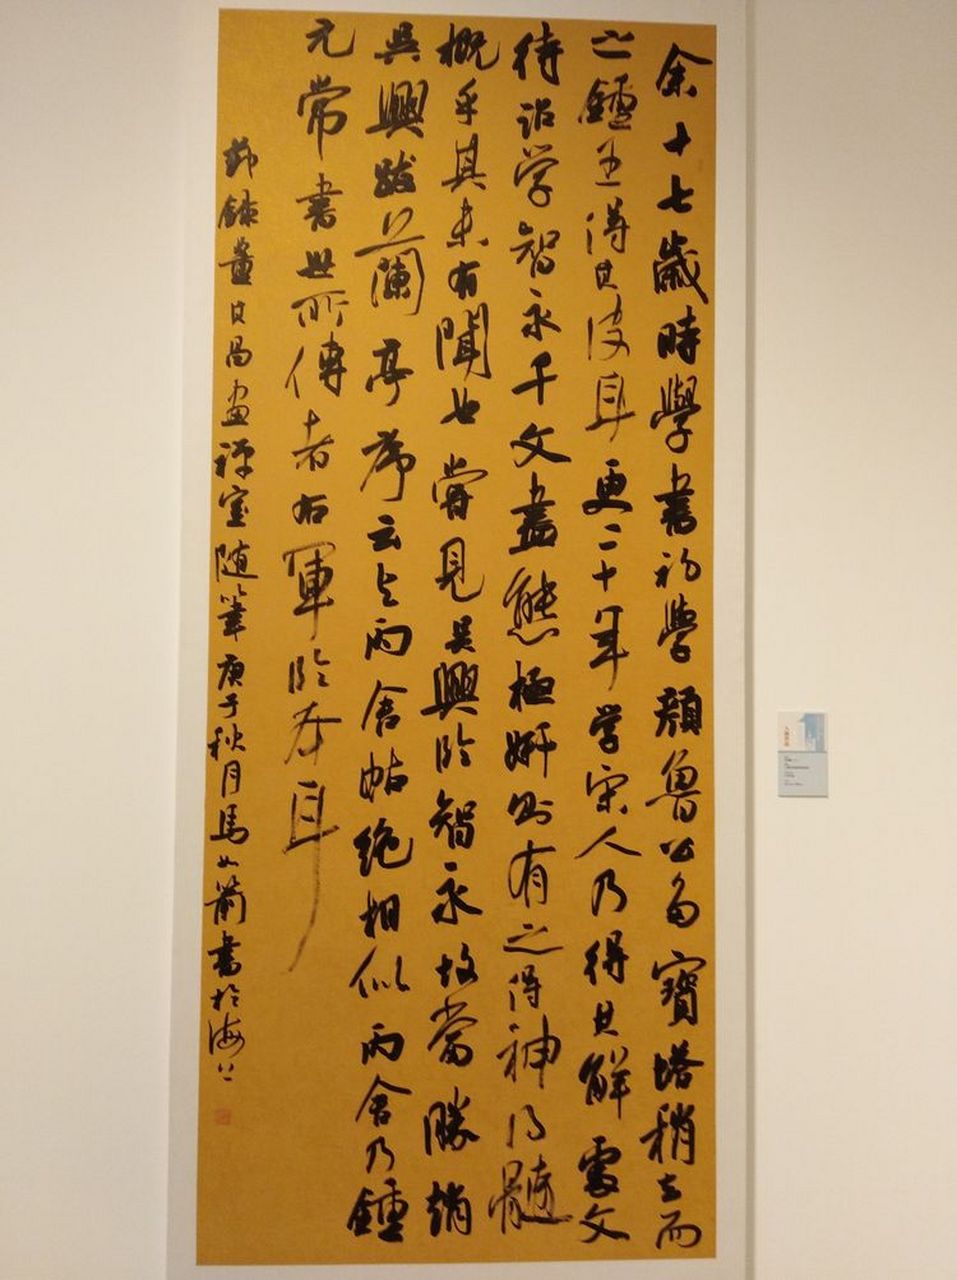 余十七歲時學書初學顏魯公多寶塔稍去而
之鍾王得其皮耳更二十年学宋人乃得其解處文
待詔学智永千文盡態極妍則有之得神得髓
概乎其未有聞也嘗見吳興臨智永故當勝趙
吳興跋蘭亭序云與丙舍帖絶相似丙舍乃鍾
元常書世所傳者右軍臨本耳
節録董其昌画禅室随筆庚子秋月馬如箭書於海上